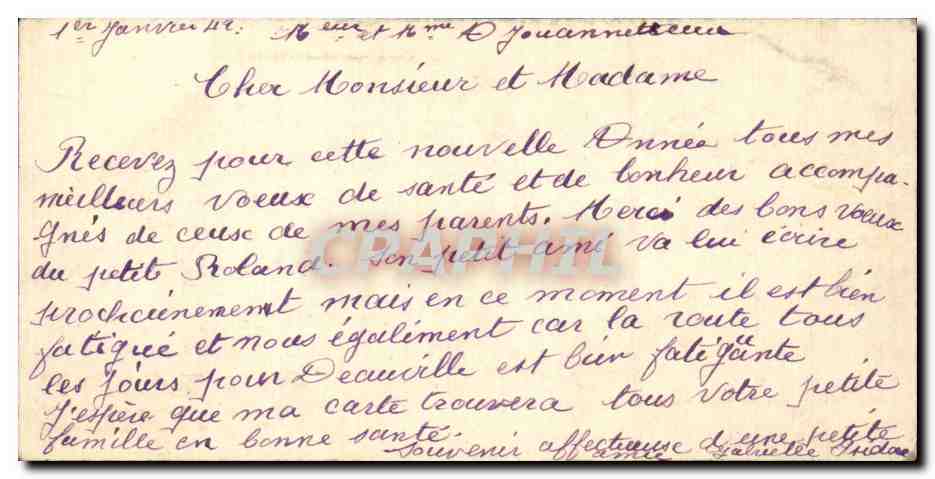 1er Janvier 42. Meur et Mme D Jouanneteau
Cher Monsieur et Madame
Recevez pour cette nouvelle Année tous mes
meilleurs voeux de santé et de bonheur accompa-
gnés de ceux de mes parents. Merci des bons voeux
du petit Roland. Son petit ami va lui écrire
prochainement mais en ce moment il est bien
fatigué et nous égaliment car la route tous
les jours pour Deauville est bien fatigante
J'espère que ma carte trouvera tous votre petite
famille en bonne santé.
Souvenir affectueuse d'une petite
amie
CPAPHIL